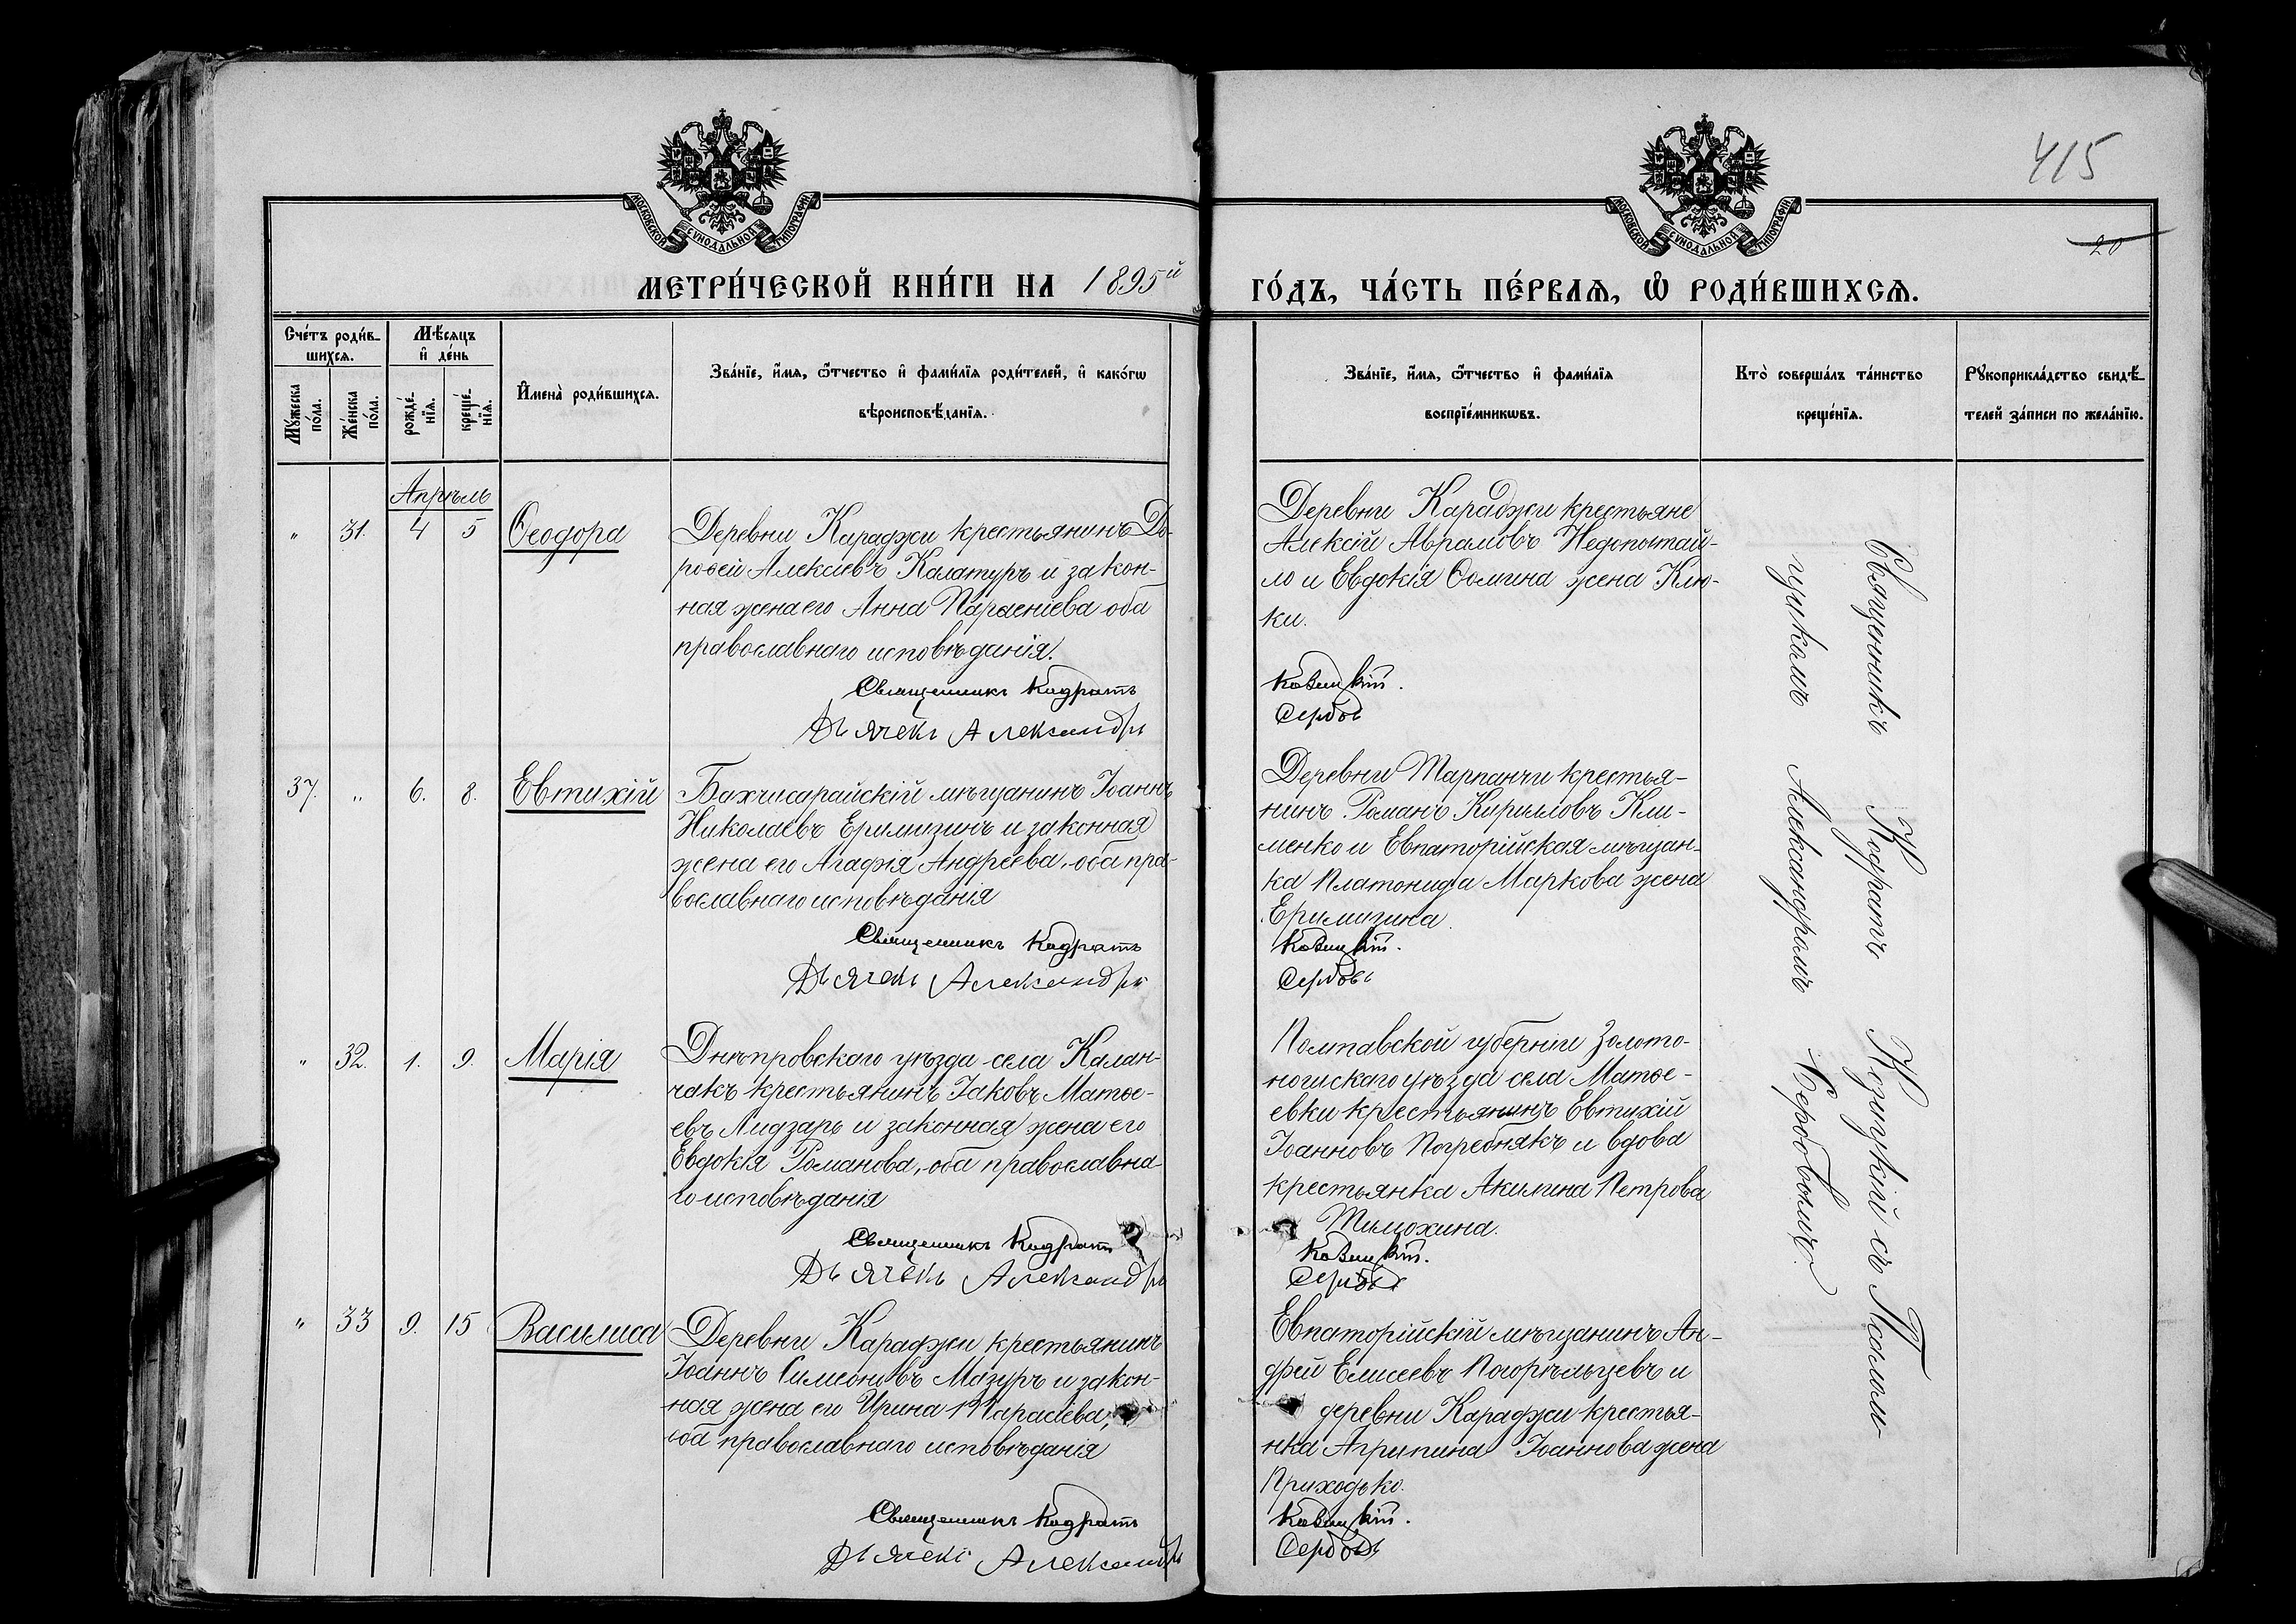 415
20
МОСКОВСКОЙ СѴНОДАЛЬНОЙ ТИПОГРАФІИ
МОСКОВСКОЙ СѴНОДАЛЬНОЙ ТИПОГРАФІИ
МЕТРИ́ЧЕСКОЙ КНИ́ГИ НА 1895й
ГО́ДЪ, ЧА́СТЬ ПЕ́РВАѦ, Ѡ҆ РОДИ́ВШИХСѦ.
Сче́тъ роди́в-
шихсѧ.
Мꙋ́жеска по́ла.
Же́нска по́ла.
Мѣ́сѧцъ
и҆ де́нь
рожде́-
нїѧ.
креще́-
нїѧ.
И҆мена̀ роди́вшихсѧ.
Зва́нїе, и҆́мѧ, ѻ҆́тчество и҆ фами́лїѧ роди́телей, и҆ како́гѡ
вѣроисповѣ́данїѧ.
Зва́нїе, и҆́мѧ, ѻ҆́тчество и҆ фами́лїѧ
воспрїе́мникѡвъ.
Кто̀ соверша́лъ та́инство
креще́нїѧ.
Рꙋкоприкла́дство свидѣ́-
телей за́писи по жела́нїю.
Апрѣль
" 31. 4 5 Ѳеодора
Деревни Караджи крестьянинъ До-
роѳей Алексіевъ Калатуръ и закон-
ная жена его Анна Парѳеніева оба
православнаго исповѣданія.
Священникъ Кодратъ
Дьячекъ Александръ
Деревни Караджи крестьяне
Алексій Аврамовъ Недопытай-
ло и Евдокія Ѳомина жена Клю-
ки.
Козицкій.
Сербовъ
37. " 6. 8. Евтихій
Бахчисарайскій мѣщанинъ Іоаннъ
Николаевъ Еримизинъ и законная
жена его Агафія Андреева, оба пра-
вославнаго исповѣданія
Священникъ Кодратъ
Дьячекъ Александръ
Деревни Тарпанчи крестья-
нинъ Романъ Кирилловъ Кли-
менко и Евпаторійская мѣщан-
ка Платонида Маркова жена
Еримизина.
Козицкій.
Сербовъ
" 32. 1. 9. Марія
Днѣпровскаго уѣзда села Калан-
чакъ крестьянинъ Іаковъ Матѳе-
евъ Лидзарь и законная жена его
Евдокія Романова, оба православна-
го исповѣданія
Священникъ Кодратъ
Дьячекъ Александръ
Полтавской губерніи Золото-
ношскаго уѣзда села Матѳе-
евки крестьянинъ Евтихій
Іоанновъ Погребнякъ и вдова
крестьянка Акилина Петрова
Тимохина.
Козицкій.
Сербовъ
" 33 9. 15 Василиса
Деревни Караджи крестьянинъ
Іоаннъ Симеоновъ Мазуръ и закон-
ная жена его Ирина Тарасіева,
оба православнаго исповѣданія
Священникъ Кодратъ
Дьячекъ Александръ
Евпаторійскій мѣщанинъ Ан-
дрей Елисеевъ Погорѣльцевъ и
деревни Караджи крестья-
нка Агрипина Іоаннова жена
Приходько.
Козицкій.
Сербовъ
Священникъ Кодратъ Козицкій съ Псаломь
щикомъ Александромъ Сербовымъ.